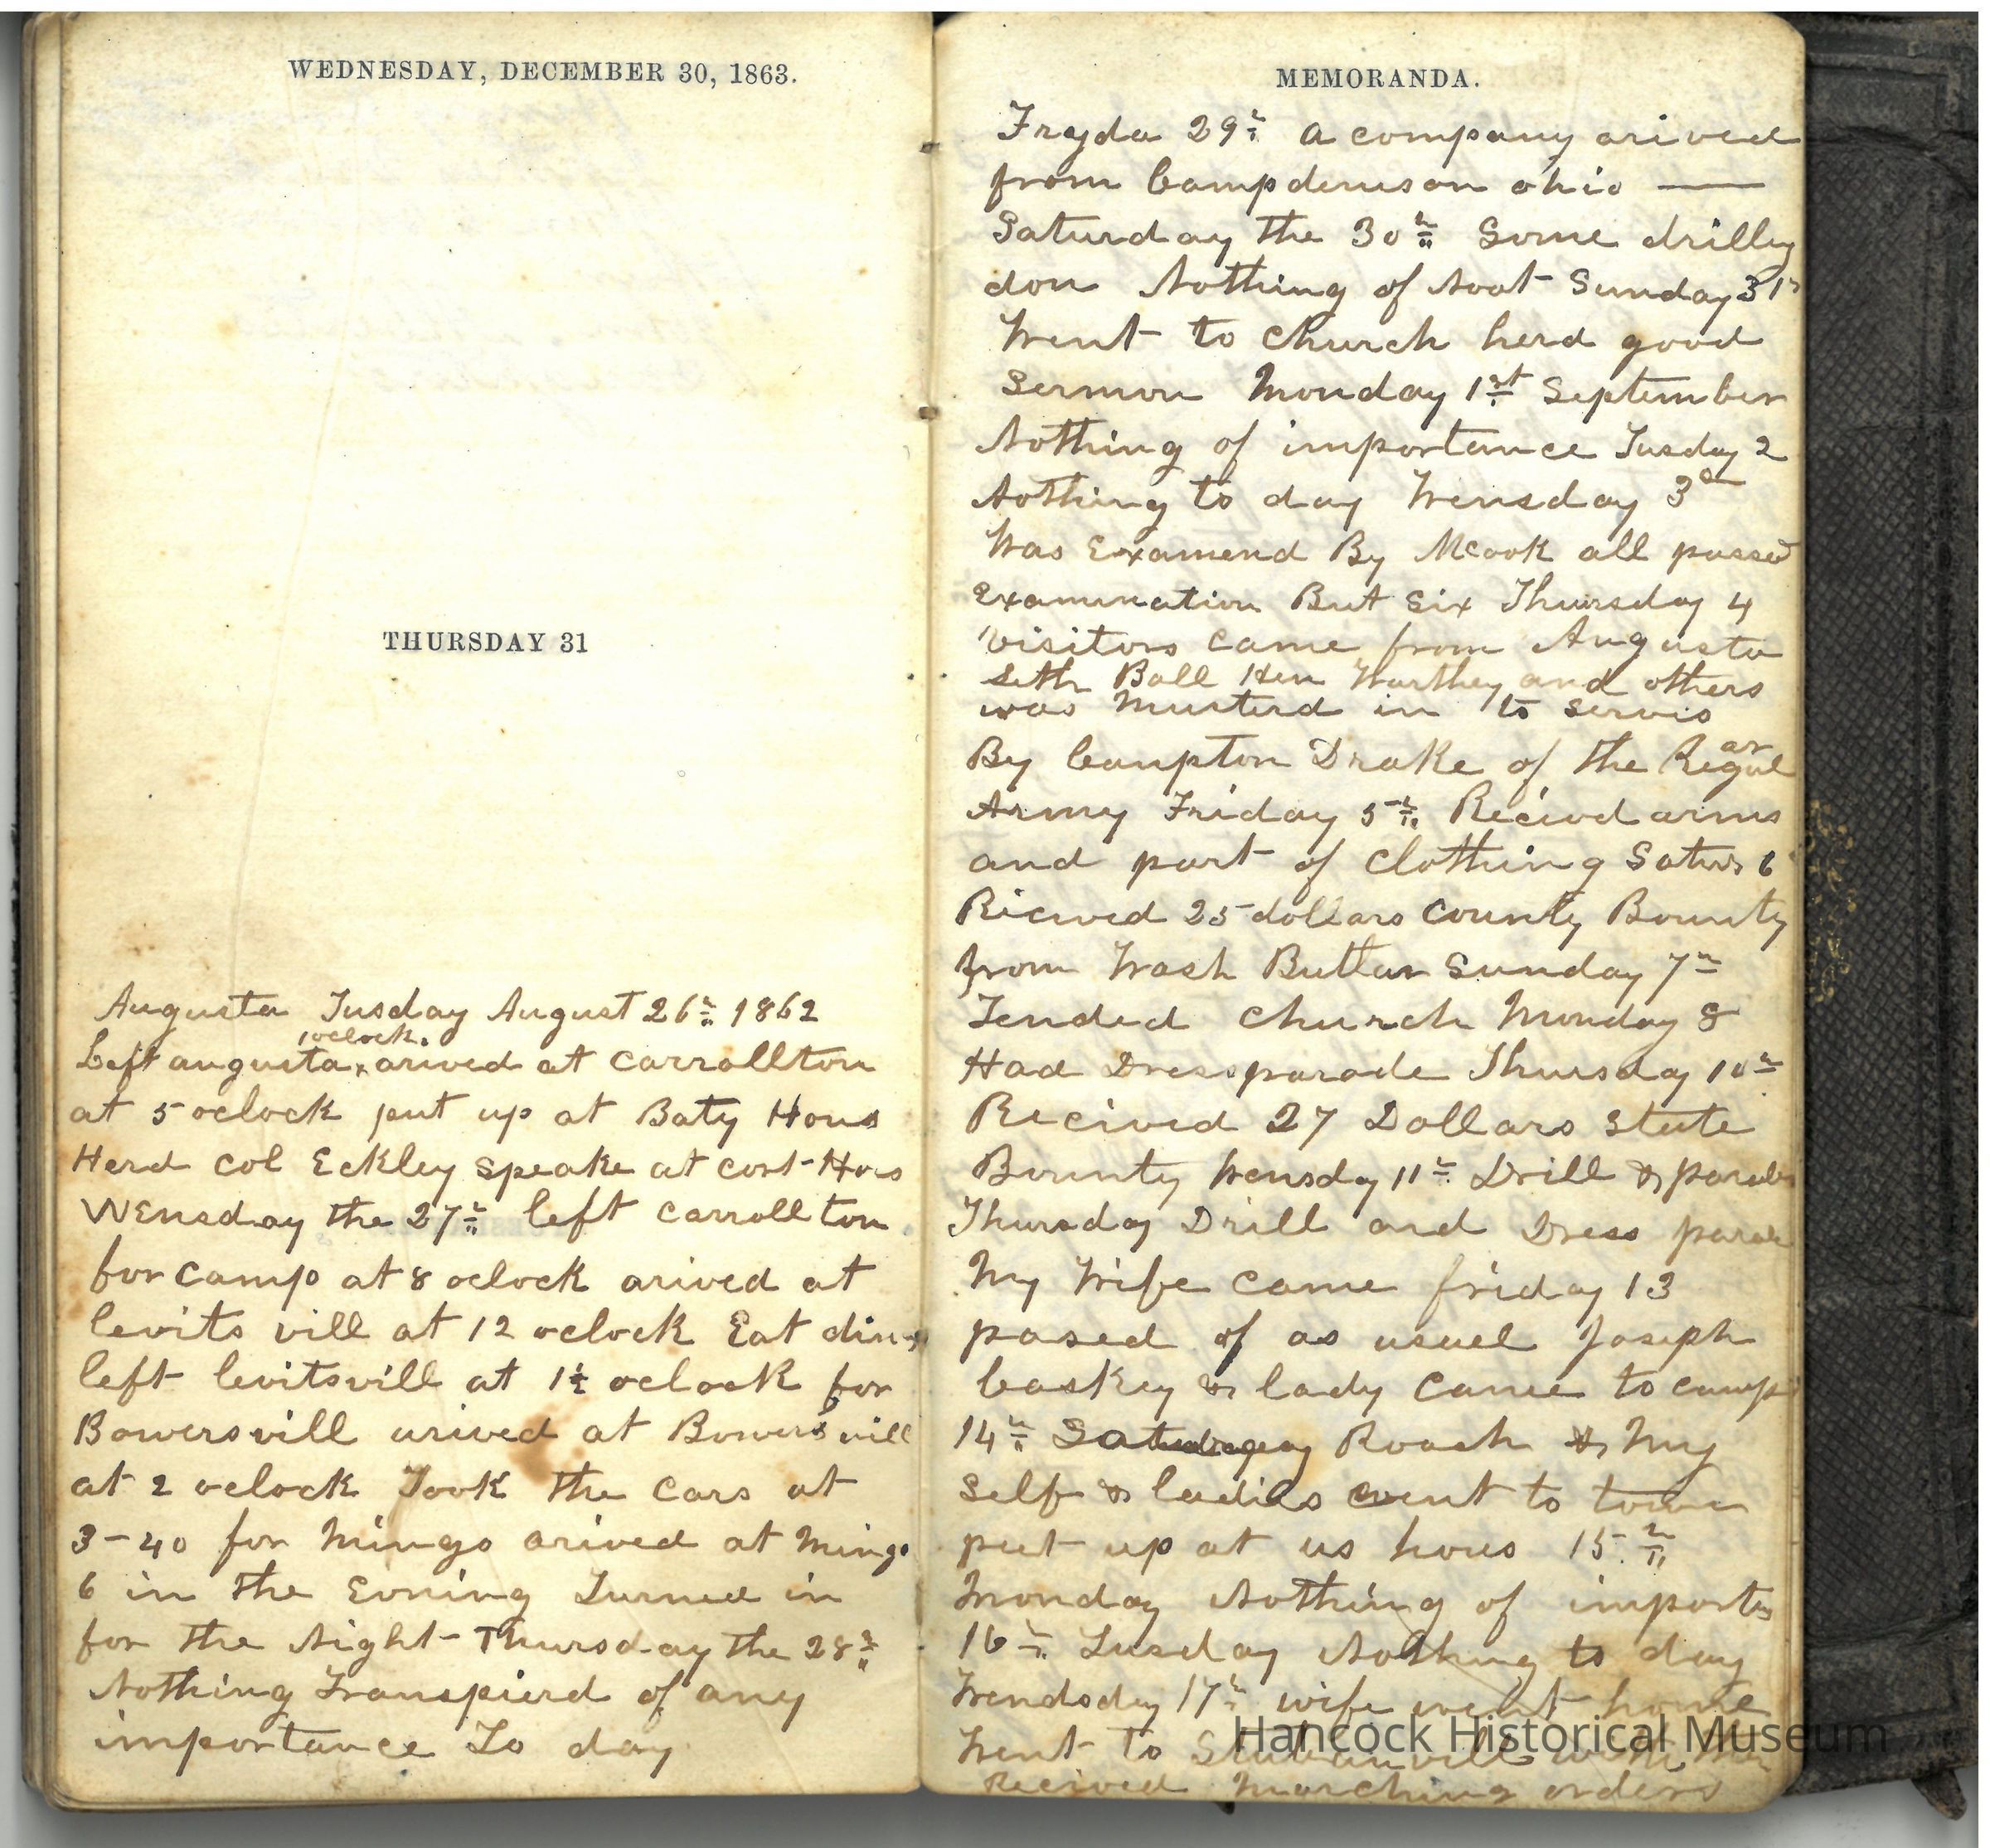 WEDNESDAY, DECEMBER 30, 1863.
THURSDAY 31
Augusta Tusday August 26th 1862
1oclock.
Left augusta x arived at Carrollton
at 5 oclock put up at Baty Hous
Herd col Eckley Speake at cort-Hous
WEnsday the 27th left Carrollton
for Camp at 8 oclock arived at
levits vill at 12 oclock Eat din
left levitsvill at 1½ oclock for
Bowersvill arived at Bowersvill
at 2 oclock Took the Cars at
3-40 for Mingo arived at Mingo
6 in the Evning Turned in
for the Night- Thursday the 28th
Nothing Transpierd of any
importance To day
MEMORANDA.
Fryda 29th a company arived
from Campdenison ohio —
Saturday the 30th Some drilling
don Nothing of Noat Sunday 31st
Went to Church herd good
Sermon Monday 1st September
Nothing of importance Tusday 2
Nothing to day Wensday 3d
Was Examend By McCook all passed
Examination But Six Thursday 4
visitors came from Augusta
Seth Ball Hen Worthey and others
was Musterd in to servis
By Campton Drake of the Regular
Army Friday 5th Recivd arms
and part of Clothing Satur 6
Ricived 25 dollars County Bounty
from Wash Buttlar Sunday 7th
Tended Church Monday 8
Had Dressparade Thursday 10th
Recived 27 Dollars State
Bounty Wensday 11th Drill & parade
Thursday Drill and Dress parade
My Wife came friday 13
pased of as usuel Joseph
Caskey & lady came to camp
14th Saturday Roach & My
Self & ladies went to town
put up at us hous 15th
Monday Nothing of importa
16th Tusday Nothing to day
Wendsday 17th wife went home
Went to Stubanvill with her
Recived Marching orders
Hancock Historical Museum